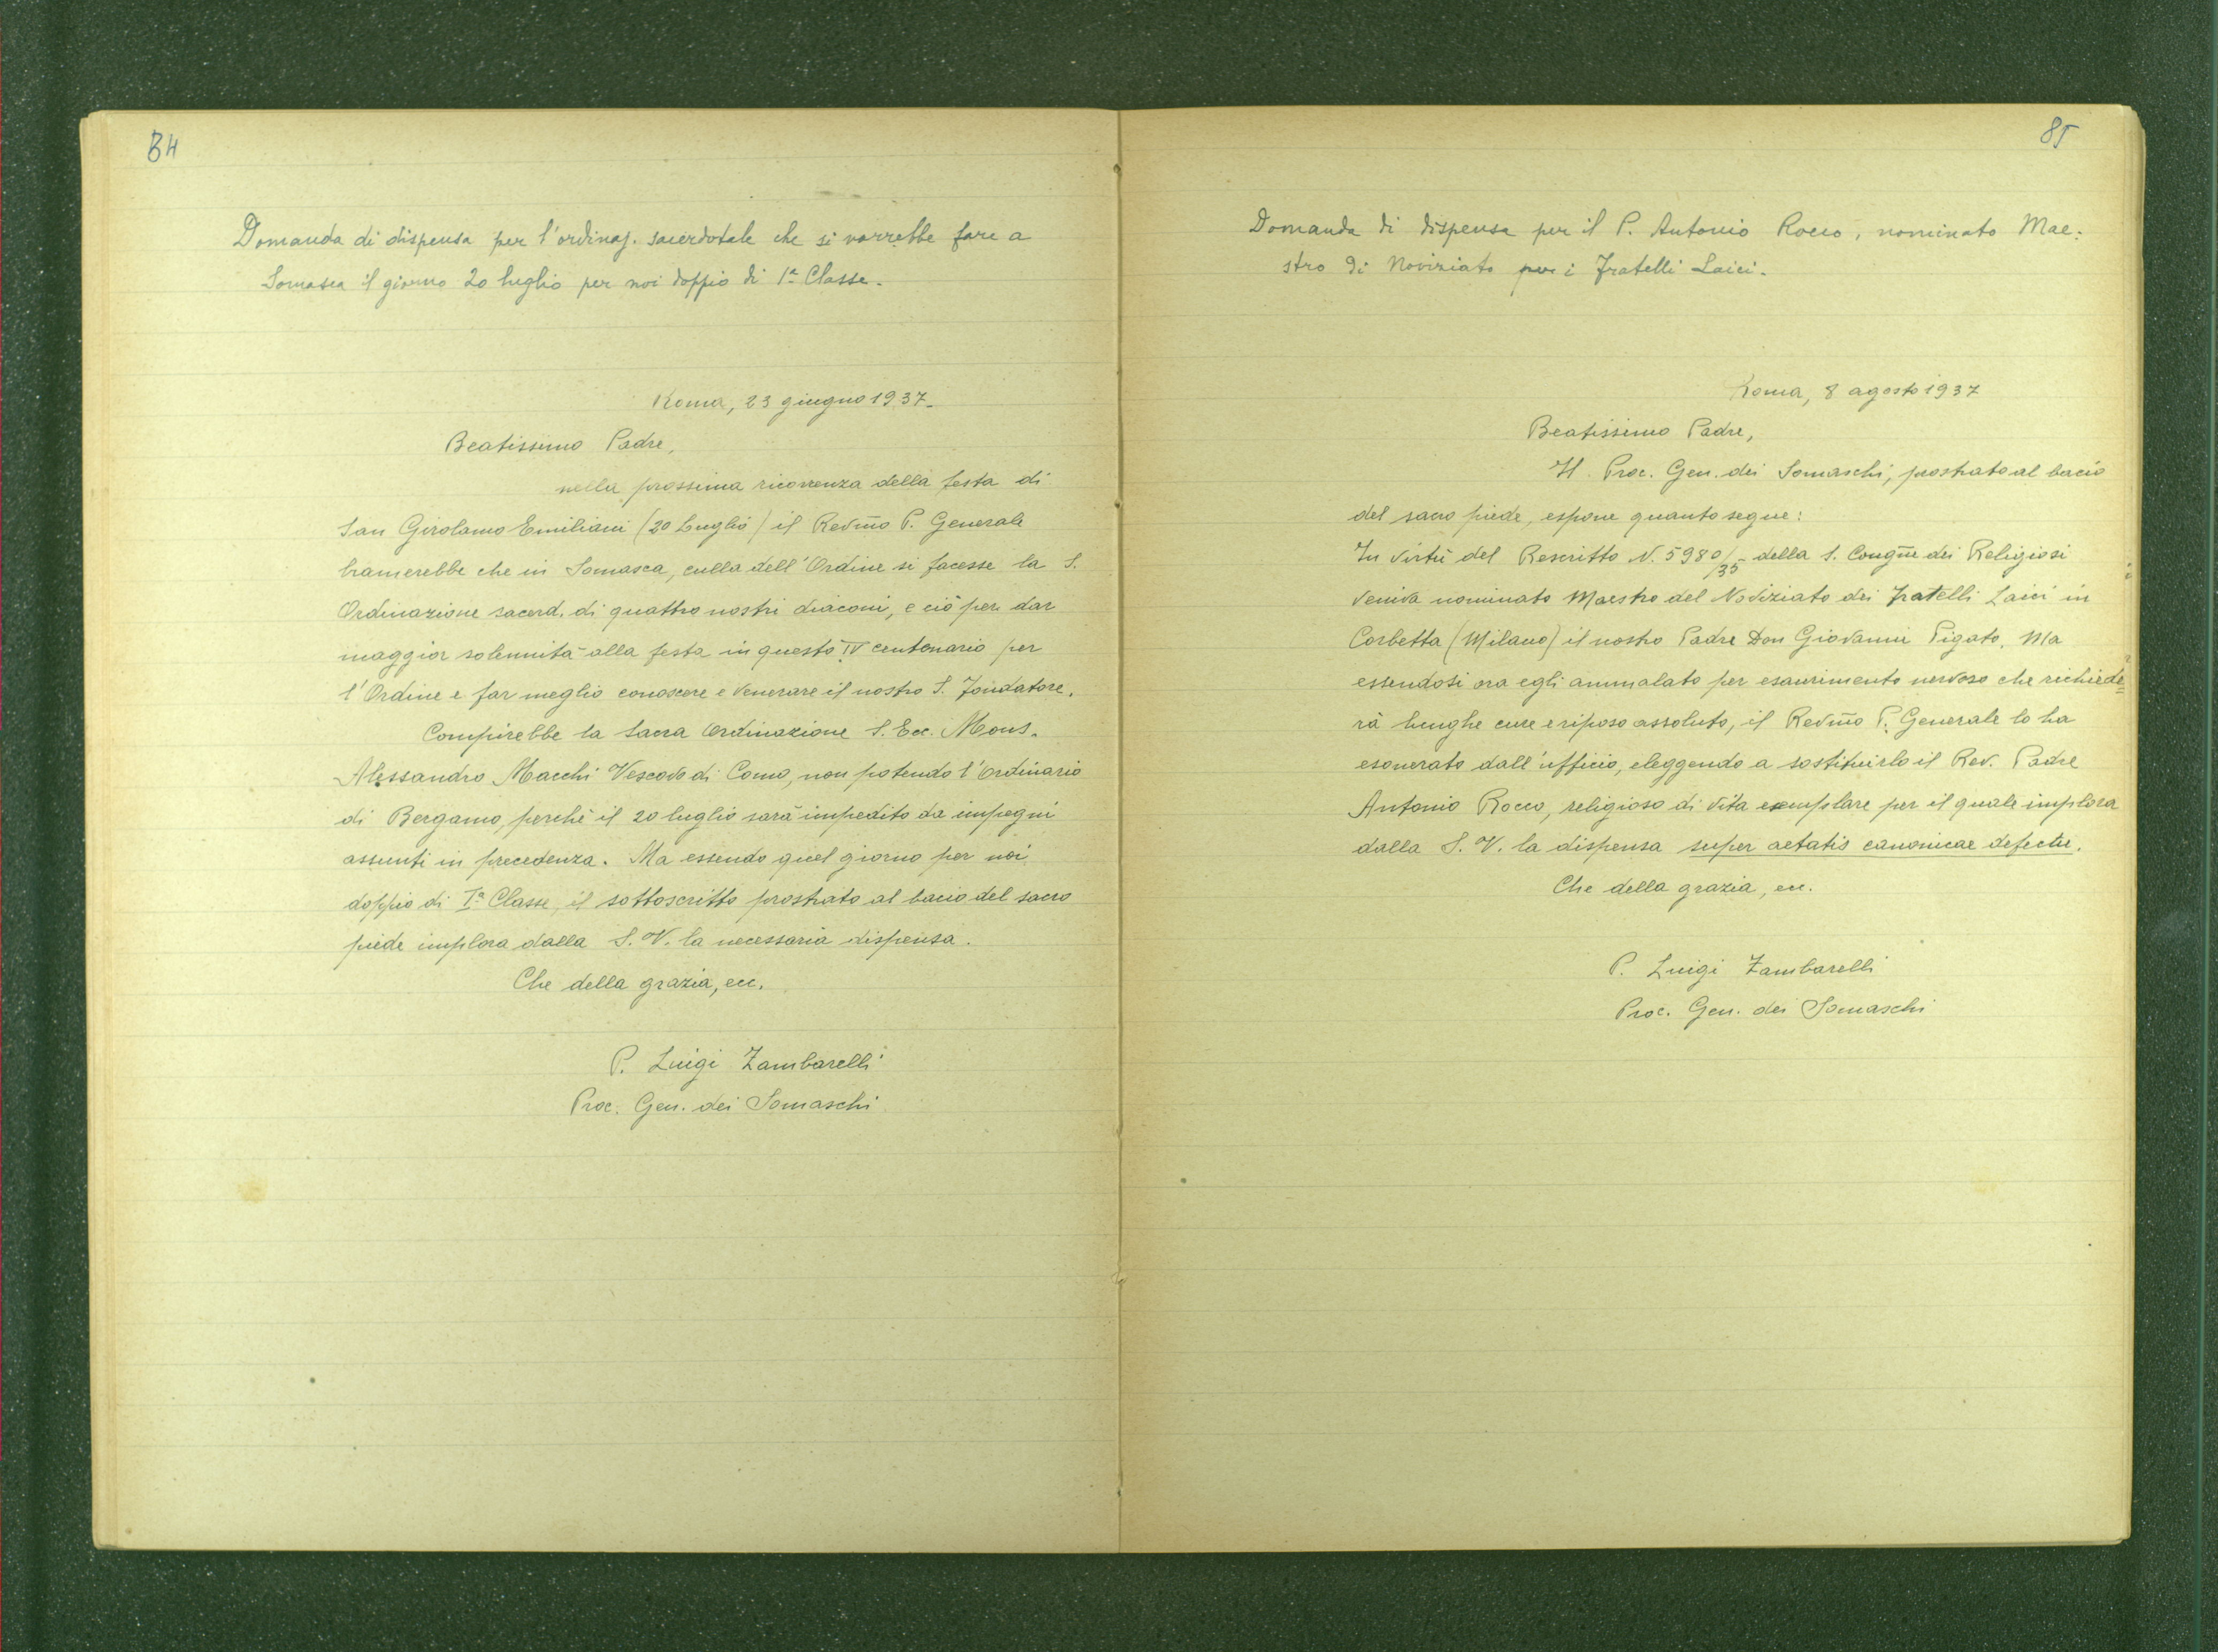 84
Domanda di dispensa per l'ordinaz. sacerdotale che si vorrebbe fare a
Somasca il giorno 20 luglio per noi doppio di 1ª Classe.
Roma, 23 giugno 1937.
Beatissimo Padre,
nella prossima ricorrenza della festa di
San Girolamo Emiliani (20 Luglio) il Rev͞mo P. Generale
bramerebbe che in Somasca, culla dell'Ordine si facesse la S.
Ordinazione sacerd. di quattro nostri diaconi, e ciò per dar
maggior solennità alla festa in questo IV centenario per
l'Ordine e far meglio conoscere e venerare il nostro S. Fondatore.
Compirebbe la Sacra Ordinazione S. Ecc. Mons.
Alessandro Macchi Vescovo di Como, non potendo l'Ordinario
di Bergamo, perchè il 20 luglio sarà impedito da impegni
assunti in precedenza. Ma essendo quel giorno per noi
doppio di Iª Classe, il sottoscritto prostrato al bacio del sacro
piede implora dalla S. V. la necessaria dispensa.
Che della grazia, ecc.
P. Luigi Zambarelli
Proc. Gen. dei Somaschi
85
Domanda di dispensa per il P. Antonio Rocco, nominato Mae:
stro di Noviziato per i Fratelli Laici.
Roma, 8 agosto 1937
Beatissimo Padre,
Il Proc. Gen. dei Somaschi, prostrato al bacio
del sacro piede, espone quanto segue:
In virtù del Rescritto N. 5980/35 della S. Cong͞ne dei Religiosi
veniva nominato Maestro del Noviziato dei Fratelli Laici in
Corbetta (Milano) il nostro Padre Don Giovanni Pigato. Ma
essendosi ora egli ammalato per esaurimento nervoso che richiede=
rà lunghe cure e riposo assoluto, il Rev͞mo P. Generale lo ha
esonerato dall'ufficio, eleggendo a sostituirlo il Rev. Padre
Antonio Rocco, religioso di vita esemplare per il quale implora
dalla S. V. la dispensa super aetatis canonicae defectu.
Che della grazia, ecc.
P. Luigi Zambarelli
Proc. Gen. dei Somaschi